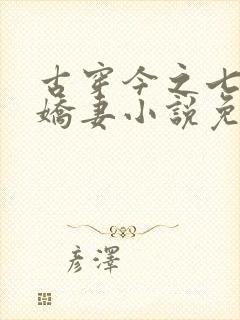 古穿今之七
嬌妻小說免
彥澤